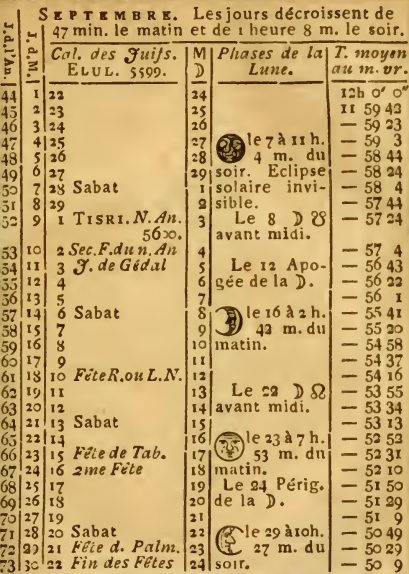 SEPTEMBRE. Les jours décroissent de
47 min. le matin et de 1 heure 8 m. le soir.
J.d.l'An. J.d.M. Cal. des Juifs. M Phases de la T. moyen
ELUL. 5599. D Lune. au m. vr.
44 1 22 24 12h 0' 0"
45 2 23 25 11 59 42
46 3 24 26 — 59 23
47 4 25 27 le 7 à 11 h. — 59 3
48 5 26 28 4 m. du — 58 44
49 6 27 29 soir. Eclipse — 58 24
50 7 28 Sabat 1 solaire invi- — 58 4
51 8 29 2 sible. — 57 44
52 9 1 TISRI. N. An. 3 Le 8 ☽ ☋ — 57 24
5600. avant midi.
53 10 2 Sec. F. du n. An 4 — 57 4
54 11 3 J. de Gédal 5 Le 12 Apo- — 56 43
55 12 4 6 gée de la ☽. — 56 22
56 13 5 7 — 56 1
57 14 6 Sabat 8 le 16 à 2 h. — 55 41
58 15 7 9 42 m. du — 55 20
59 16 8 10 matin. — 54 58
60 17 9 11 — 54 37
61 18 10 Fête R. ou L. N. 12 — 54 16
62 19 11 13 Le 22 ☽ ☊ — 53 55
63 20 12 14 avant midi. — 53 34
64 21 13 Sabat 15 — 53 13
65 22 14 16 le 23 à 7 h. — 52 52
66 23 15 Fête de Tab. 17 53 m. du — 52 31
67 24 16 2me Fête 18 matin. — 52 10
68 25 17 19 Le 24 Périg. — 51 50
69 26 18 20 de la ☽. — 51 29
70 27 19 21 — 51 9
71 28 20 Sabat 22 le 29 à 10h. — 50 49
72 29 21 Fête d. Palm. 23 27 m. du — 50 29
73 30 22 Fin des Fêtes 24 soir. — 50 9